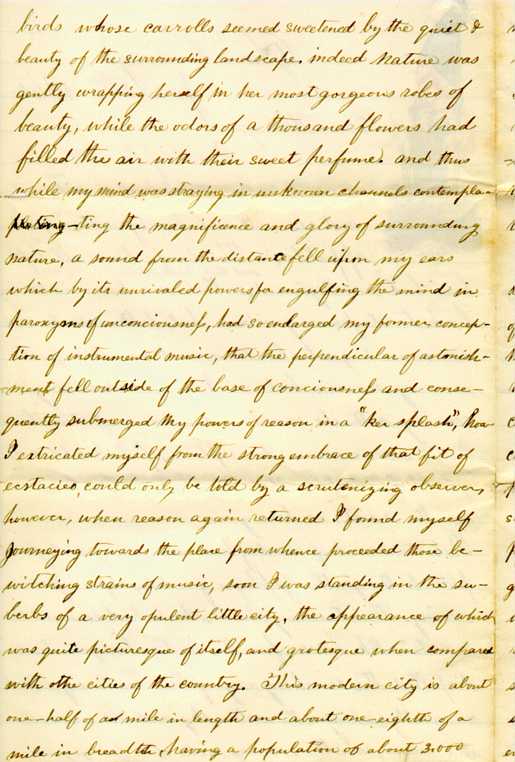 birds whose carrolls seemed sweetened by the quiet &
beauty of the surrounding landscape. indeed Nature was
gently wrapping herself in her most gorgeous robes of
beauty, while the odors of a thousand flowers had
filled the air with their sweet perfume. and thus
while my mind was straying in unknown channels contempla-
ting the magnificence and glory of surrounding
nature, a sound from the distance fell upon my ears
which by its unrivaled powers for engulfing the mind in
paroxyms of unconciousness, had so enlarged my former concep-
tion of instrumental music, that the perpendicular of astonish-
ment fell outside of the base of conciousness and conse-
quently submerged my powers of reason in a "ker splash", how
I extricated myself from the strong embrace of that fit of
ecstacies, could only be told by a scrutenizing observer,
however, when reason again returned I found myself
Journeying towards the place from whence proceeded those be-
witching strains of music, soon I was standing in the su-
berbs of a very opulent little city, the appearance of which
was quite picturesque of itself, and grotesque when compared
with othe cities of the country. This modern city is about
one-half of a mile in length and about one-eighth of a
mile in breadth, having a population of about 3,000